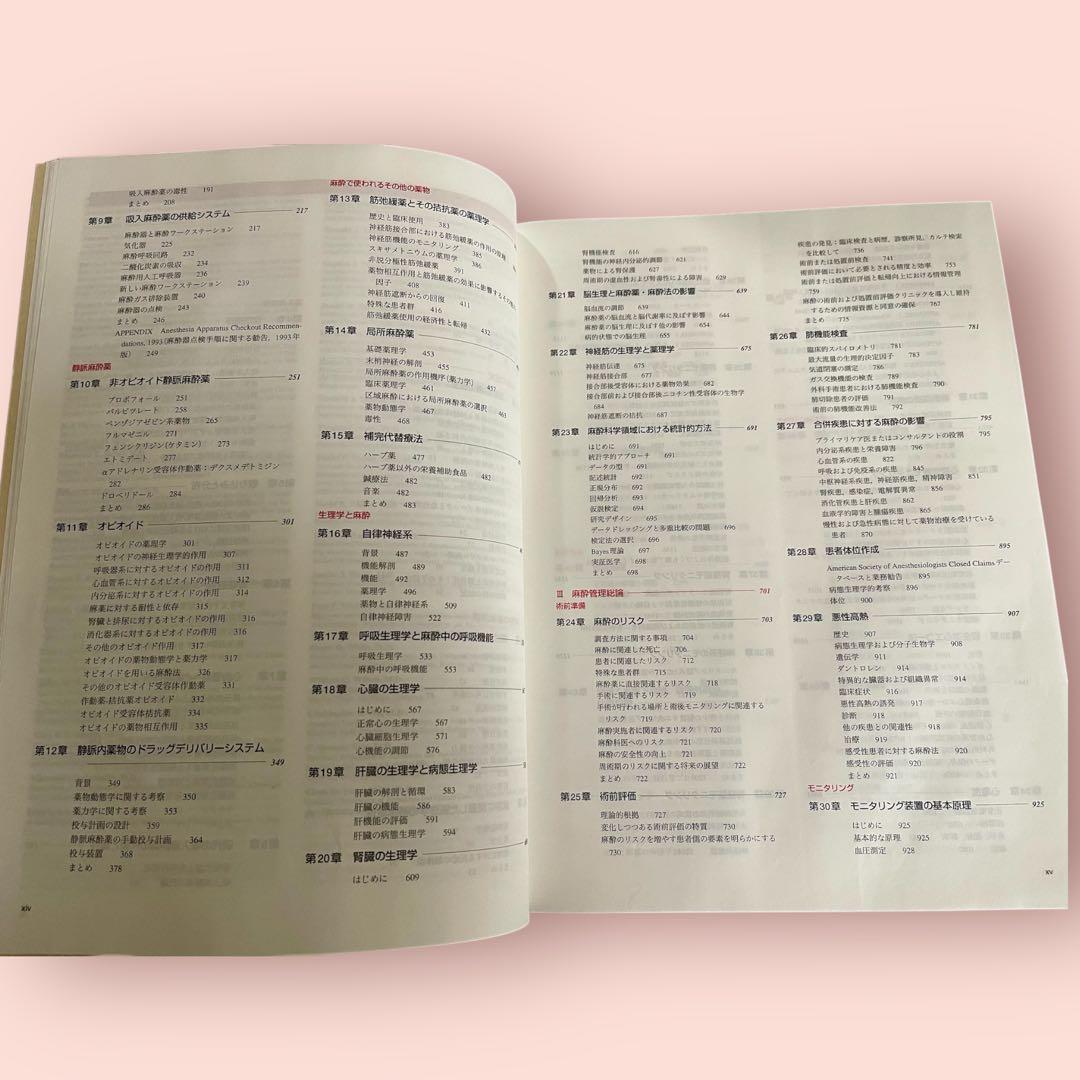 吸入麻酔薬の毒性 191
まとめ 208
第9章 吸入麻酔薬の供給システム 217
麻酔器と麻酔ワークステーション 217
気化器 225
麻酔呼吸回路 232
二酸化炭素の吸収 234
麻酔用人工呼吸器 236
新しい麻酔ワークステーション 239
麻酔ガス排除装置 240
麻酔器の点検 243
まとめ 246
APPENDIX Anesthesia Apparatus Checkout Recommen-
dations, 1993(麻酔器点検手順に関する勧告, 1993年
版) 249
静脈麻酔薬
第10章 非オピオイド静脈麻酔薬 251
プロポフォール 251
バルビツレート 258
ベンゾジアゼピン系薬物 265
フルマゼニル 271
フェンシクリジン(ケタミン) 273
エトミデート 277
αアドレナリン受容体作動薬：デクスメデトミジン
282
ドロペリドール 284
まとめ 286
第11章 オピオイド 301
オピオイドの薬理学 301
オピオイドの神経生理学的作用 307
呼吸器系に対するオピオイドの作用 311
心血管系に対するオピオイドの作用 312
内分泌系に対するオピオイドの作用 314
麻薬に対する耐性と依存 315
腎臓と排尿に対するオピオイドの作用 316
消化器系に対するオピオイドの作用 316
その他のオピオイド作用 317
オピオイドの薬物動態学と薬力学 317
オピオイドを用いる麻酔法 326
その他のオピオイド受容体作動薬 331
作動薬-拮抗薬オピオイド 332
オピオイド受容体拮抗薬 334
オピオイドの薬物相互作用 335
第12章 静脈内薬物のドラッグデリバリーシステム
349
背景 349
薬物動態学に関する考察 350
薬力学に関する考察 353
投与計画の設計 359
静脈麻酔薬の手動投与計画 364
投与装置 368
まとめ 378
xiv
麻酔で使われるその他の薬物
第13章 筋弛緩薬とその拮抗薬の薬理学
歴史と臨床使用 383
神経筋接合部における筋弛緩薬の作用の原理
神経筋機能のモニタリング 385
スキサメトニウムの薬理学 386
非脱分極性筋弛緩薬 391
薬物相互作用と筋弛緩薬の効果に影響するその他の
因子 408
神経筋遮断からの回復 411
特殊な患者群 416
筋弛緩薬使用の経済性と転帰 432
第14章 局所麻酔薬
基礎薬理学 453
末梢神経の解剖 455
局所麻酔薬の作用機序(薬力学) 457
臨床薬理学 461
区域麻酔における局所麻酔薬の選択 463
薬物動態学 467
毒性 468
第15章 補完代替療法
ハーブ薬 477
ハーブ薬以外の栄養補助食品 482
鍼療法 482
音楽 482
まとめ 483
生理学と麻酔
第16章 自律神経系
背景 487
機能解剖 489
機能 492
薬理学 496
薬物と自律神経系 509
自律神経障害 522
第17章 呼吸生理学と麻酔中の呼吸機能
呼吸生理学 533
麻酔中の呼吸機能 553
第18章 心臓の生理学
はじめに 567
正常心の生理学 567
心臓細胞生理学 571
心機能の調節 576
第19章 肝臓の生理学と病態生理学
肝臓の解剖と循環 583
肝臓の機能 586
肝機能の評価 591
肝臓の病態生理学 594
第20章 腎臓の生理学
はじめに 609
腎機能検査 616
腎機能の神経内分泌的調節 621
薬物による腎保護 627
周術期の虚血性および腎毒性による障害 629
第21章 脳生理と麻酔薬・麻酔法の影響 639
脳血流の調節 639
麻酔薬の脳血流と脳代謝率に及ぼす影響 644
麻酔薬の脳生理に及ぼす他の影響 654
病的状態での脳生理 655
第22章 神経筋の生理学と薬理学 675
神経筋伝達 675
神経筋接合部 677
接合部後受容体における薬物効果 682
接合部前および接合部後ニコチン性受容体の生物学
684
神経筋遮断の拮抗 687
第23章 麻酔科学領域における統計的方法 691
はじめに 691
統計学的アプローチ 691
データの型 691
記述統計 692
正規分布 692
回帰分析 693
仮説検定 694
研究デザイン 695
データドレッジングと多重比較の問題 696
検定法の選択 696
Bayes理論 697
実証医学 698
まとめ 698
III 麻酔管理総論 701
術前準備
第24章 麻酔のリスク 703
調査方法に関する事項 704
麻酔に関連した死亡 706
患者に関連したリスク 712
特殊な患者群 715
麻酔薬に直接関連するリスク 718
手術に関連するリスク 719
手術が行われる場所と術後モニタリングに関する
リスク 719
麻酔実施者に関連するリスク 720
麻酔科医へのリスク 721
麻酔の安全性の向上 721
周術期のリスクに関する将来の展望 722
まとめ 722
第25章 術前評価 727
理論的根拠 727
変化しつつある術前評価の特質 730
麻酔のリスクを増やす患者側の要素を明らかにする
730
疾患の発見：臨床検査と病歴, 診察所見, カルテ検索
を比較して 736
術前または処置前検査 741
術前評価において必要とされる精度と効率 753
術前または処置前評価と転帰向上における情報管理
759
麻酔の術前および処置前評価クリニックを導入し維持
するための情報資源と同意の確保 767
まとめ 775
第26章 肺機能検査 781
臨床的スパイロメトリ 781
最大流量の生理的決定因子 783
気道閉塞の測定 786
ガス交換機能の検査 789
外科手術患者における肺機能検査 790
肺切除患者の評価 791
術前の肺機能改善法 792
第27章 合併疾患に対する麻酔の影響 795
プライマリケア医またはコンサルタントの役割 795
内分泌系疾患と栄養障害 796
心血管系の疾患 822
呼吸および免疫系の疾患 845
中枢神経系疾患, 神経筋疾患, 精神障害 851
腎疾患, 感染症, 電解質異常 856
消化管疾患と肝疾患 862
血液学的障害と腫瘍疾患 865
慢性および急性病態に対して薬物治療を受けている
患者 870
第28章 患者体位作成 895
American Society of Anesthesiologists Closed Claimsデー
タベースと業務勧告 895
病態生理学的考察 896
体位 900
第29章 悪性高熱 907
歴史 907
病態生理学および分子生物学 908
遺伝学 911
ダントロレン 914
特異的な臓器および組織異常 914
臨床症状 916
悪性高熱の誘発 917
診断 918
他の疾患との関連性 918
治療 919
感受性患者に対する麻酔法 920
感受性の評価 920
まとめ 921
モニタリング
第30章 モニタリング装置の基本原理 925
はじめに 925
基本的な原理 925
血圧測定 928
xv